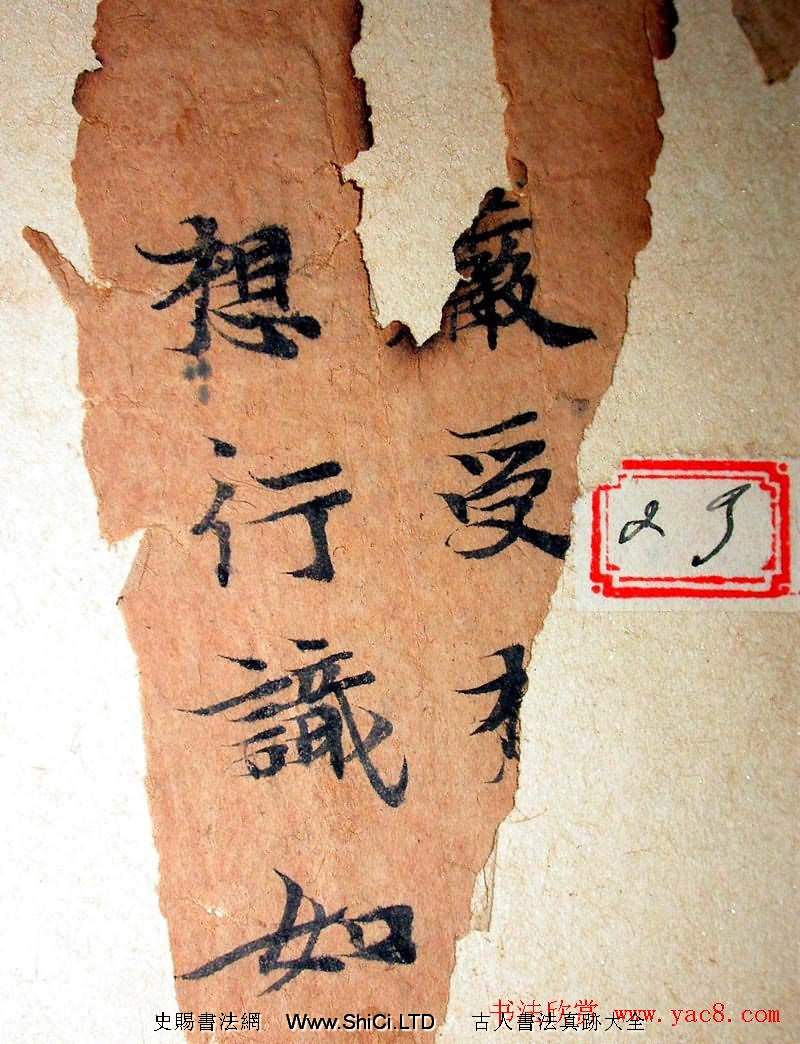 嚴受
想行識如
29
书法欣赏 www.yac8.com
史賜書法網 Www.ShiCi.LTD 古人書法真跡大全